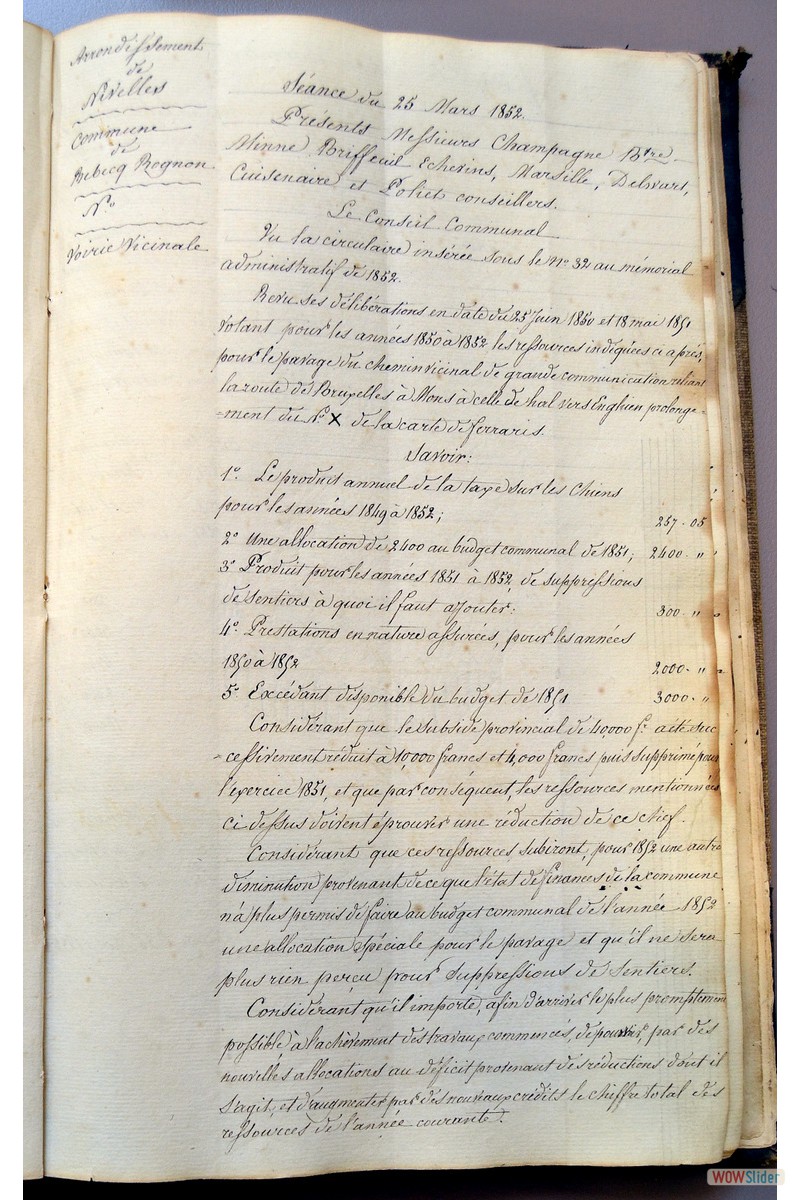 Arrondissement
de
Nivelles
Commune
de
Rebecq Rognon
N.o
Voirie Vicinale
Séance du 25 Mars 1852.
Présents Messieurs Champagne Btre
Minne Briffeuil Echevins, Marsille, Delwart,
Cuisenaire et Poliet conseillers.
Le Conseil Communal
Vu la circulaire insérée sous le no 32 au mémorial
administratif de 1852.
Revu ses délibérations en date du 25 Juin 1850 et 18 mai 1851
votant pour les années 1850 à 1852 les ressources indiquées ci après,
pour le pavage du chemin vicinal de grande communication reliant
la route de Bruxelles à Mons à celle de hal vers Enghien prolonge-
-ment du No X de la carte de ferraris.
Savoir:
1o. Le produit annuel de la taxe sur les Chiens
pour les années 1849 à 1852; 257-05
2o Une allocation de 2400 au budget communal de 1851; 2400-"
3o Produit pour les années 1851 à 1852, de suppressions
de sentiers à quoi il faut ajouter: 300-"
4o. Prestations en nature assurées, pour les années
1850 à 1852 2000-"
5o Excédant disponible du budget de 1851 3000-"
Considérant que le subside provincial de 40,000 fr. a été suc
-cessivement réduit à 10,000 francs et 4,000 francs puis supprimé pour
l'exercice 1851, et que par conséquent, les ressources mentionnées
ci dessus doivent éprouver une réduction de ce chef.
Considérant que ces ressources subiront, pour 1852 une autre
diminution provenant de ce que l'état de finances de la commune
n'a plus permis de faire au budget communal de l'année 1852
une allocation spéciale pour le pavage et qu'il ne sera
plus rien perçu pour suppressions de sentiers.
Considérant qu'il importe, afin d'arriver le plus promptement
possible à l'achèvement des travaux commencés, de pourvoir, par des
nouvelles allocations au déficit provenant des réductions dont il
s'agit, et d'augmenter par des nouveaux crédits le chiffre total des
ressources de l'année courante.
WOWSlider